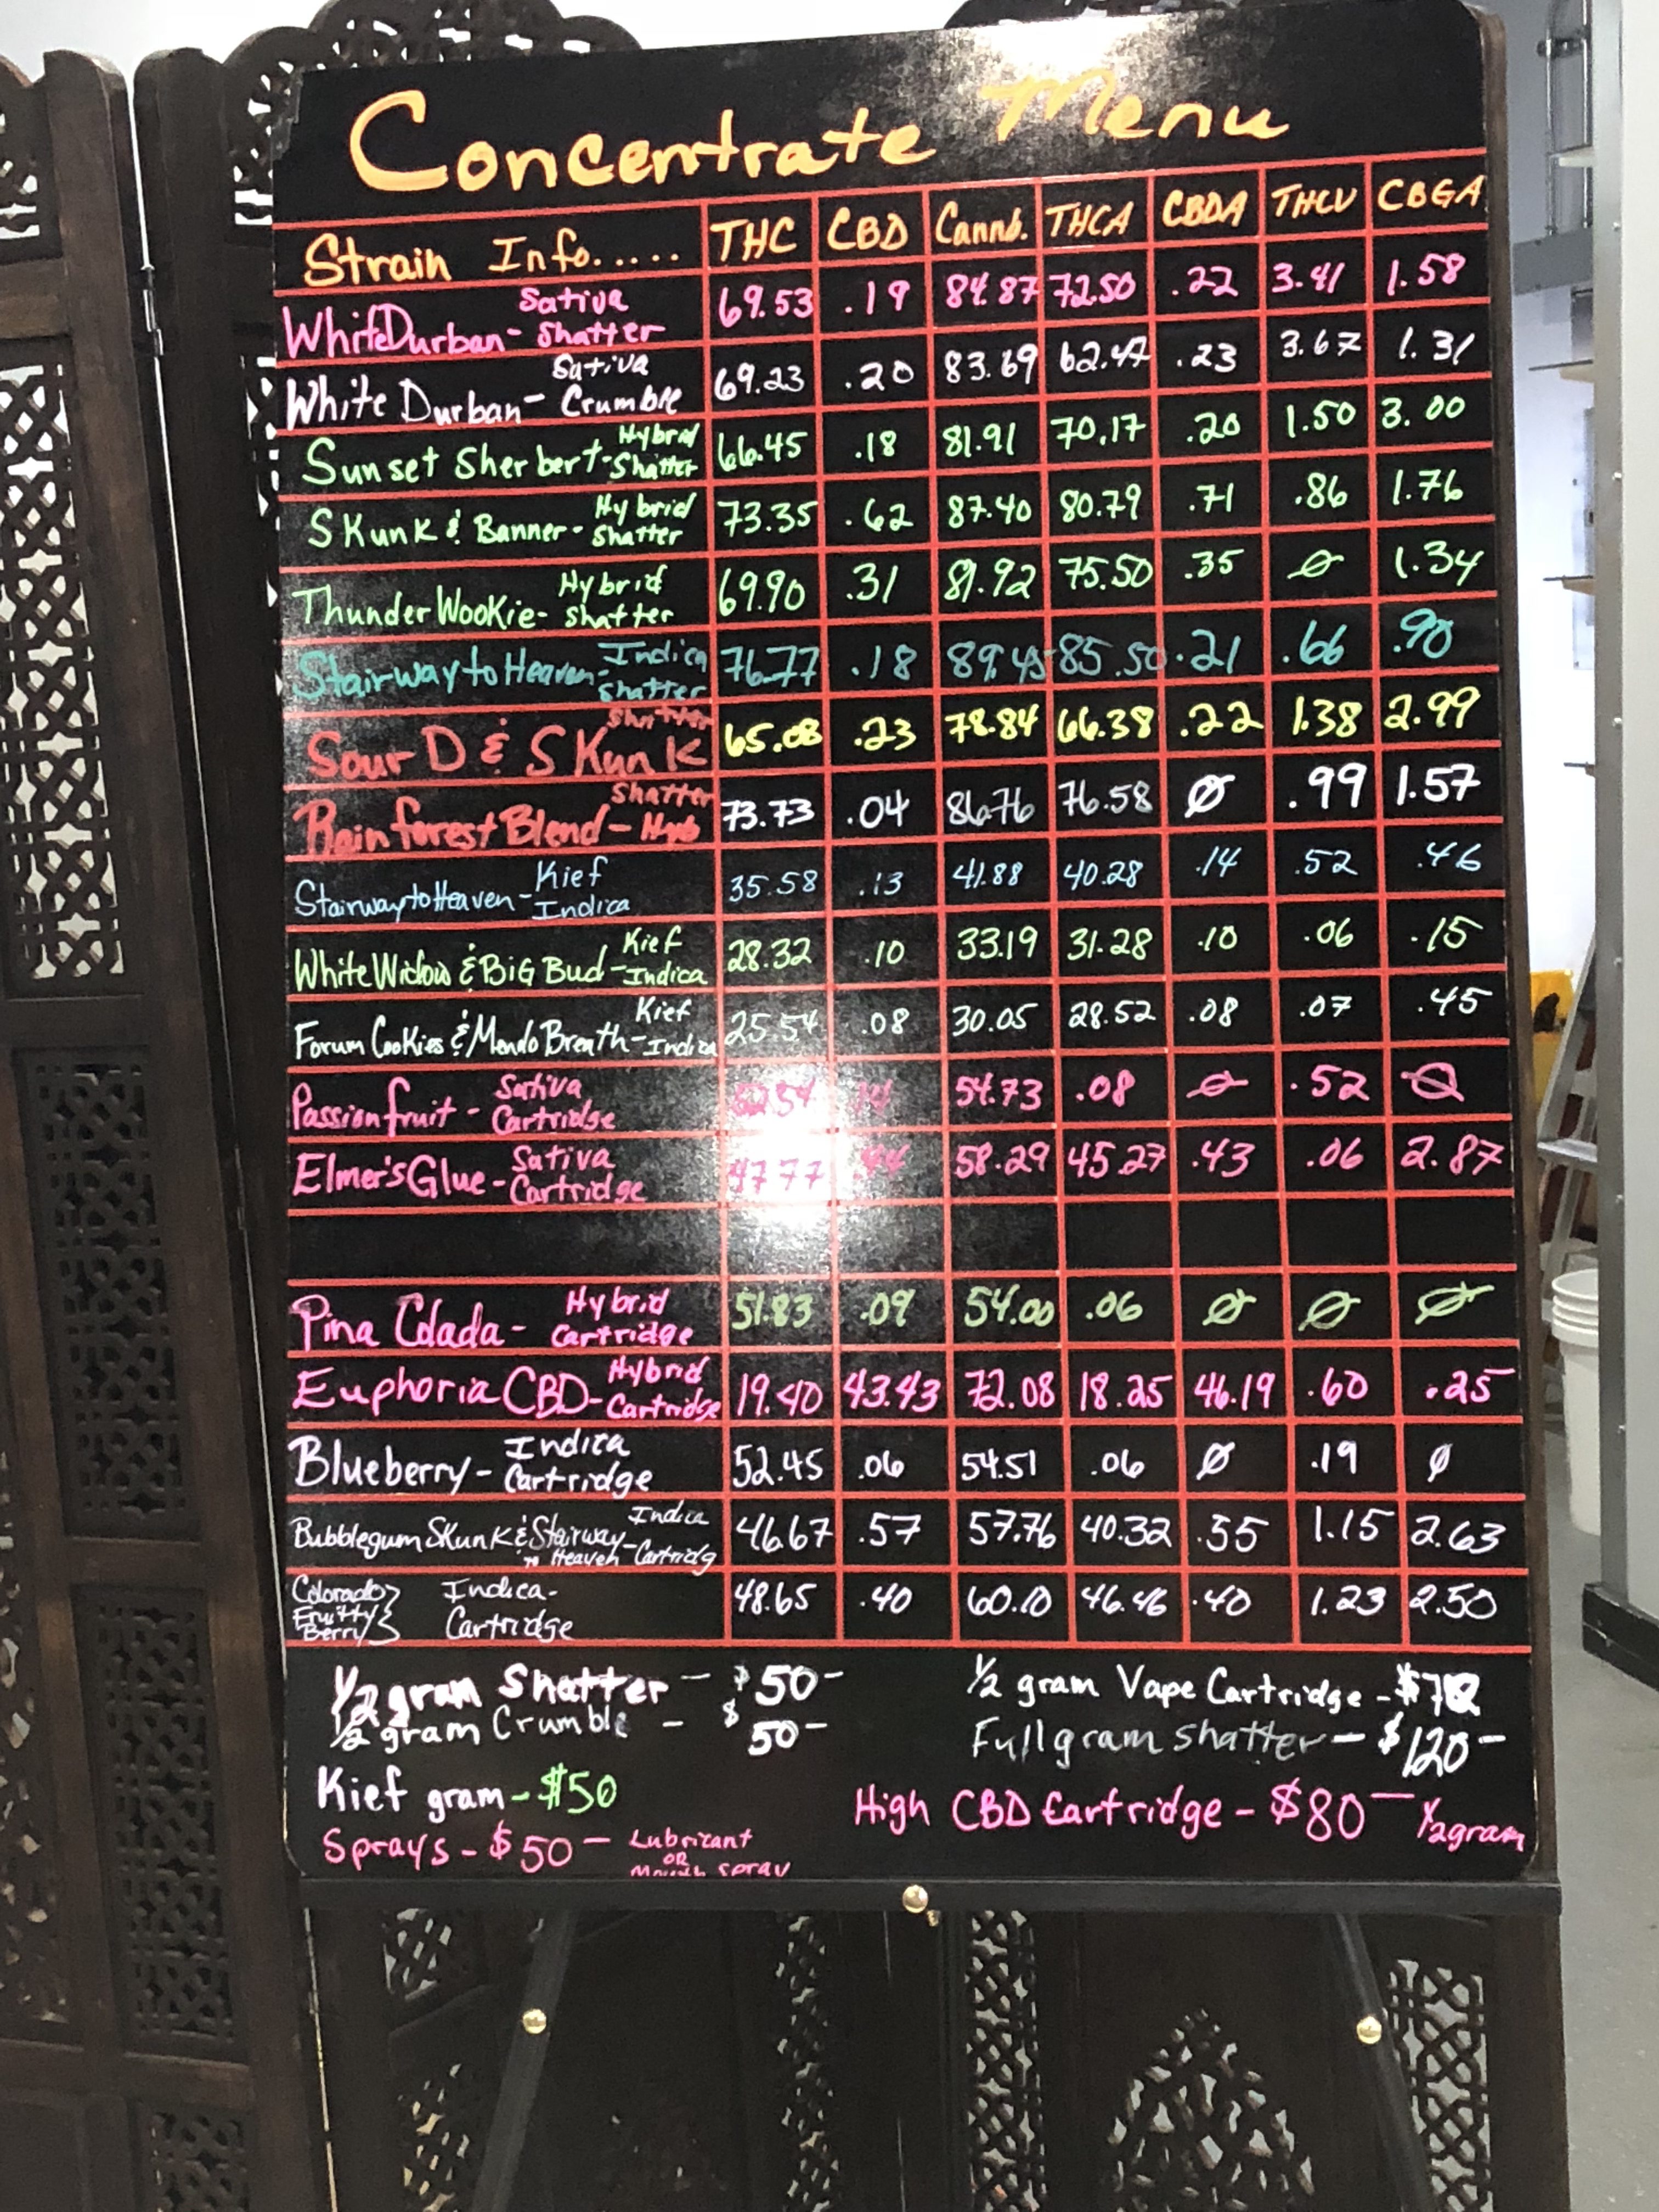 Concentrate Menu
Strain Info..... THC CBD Cannb. THCA CBDA THCV CBGA
White Durban- Sativa Shatter 69.53 .19 84.87 72.50 .22 3.41 1.58
White Durban- Sativa Crumble 69.23 .20 83.69 62.47 .23 3.67 1.31
Sunset Sherbert- Hybrid Shatter 66.45 .18 81.91 70.17 .20 1.50 3.00
Skunk & Banner- Hybrid Shatter 73.35 .62 87.40 80.79 .71 .86 1.76
Thunder Wookie- Hybrid Shatter 69.90 .31 81.92 75.50 .35 Ø 1.34
Stairway to Heaven- Indica Shatter 76.77 .18 89.45 85.50 .21 .66 .90
Sour D & Skunk Shatter 65.08 .23 78.84 66.38 .22 1.38 2.99
Rainforest Blend- Shatter Hyb 73.73 .04 86.76 76.58 Ø .99 1.57
Stairway to Heaven- Kief Indica 35.58 .13 41.88 40.28 .14 .52 .46
White Widow & BiG Bud- Kief Indica 28.32 .10 33.19 31.28 .10 .06 .15
Forum Cookies & Mendo Breath- Kief Indica 25.54 .08 30.05 28.52 .08 .07 .45
Passionfruit- Sativa Cartridge 54.73 .08 Ø .52 Ø
Elmer's Glue- Sativa Cartridge 47.77 .44 58.29 45.27 .43 .06 2.87
Pina Colada- Hybrid Cartridge 51.83 .09 54.00 .06 Ø Ø Ø
Euphoria CBD- Hybrid Cartridge 19.40 43.43 72.08 18.25 46.19 .60 .25
Blueberry- Indica Cartridge 52.45 .06 54.51 .06 Ø .19 Ø
Bubblegum Skunk & Stairway to Heaven- Indica Cartridg 46.67 .57 57.76 40.32 .55 1.15 2.63
Colorado Fruitty Berry} Indica- Cartridge 48.65 .40 60.10 46.46 .40 1.23 2.50
1/2 gram Shatter - $50- 1/2 gram Vape Cartridge -
1/2 gram Crumble - $50- Full gram shatter - $120-
Kief gram - $50
High CBD Cartridge - $80- 1/2 gram
Sprays - $50 - Lubricant OR Mouth spray